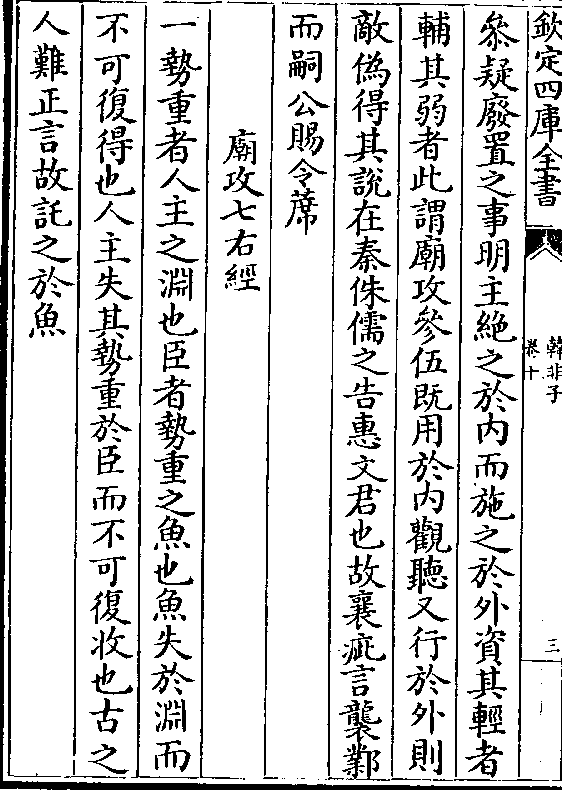 欽定四庫全書
韓非子
卷十
三
參疑廢置之事明主絶之於内而施之於外資其輕者
輔其弱者此謂廟攻參伍既用於内觀聽又行於外則
敵偽得其說在秦侏儒之告惠文君也故襄疵言襲鄴
而嗣公賜令蓆
廟攻七右經
一勢重者人主之淵也臣者勢重之魚也魚失於淵而
不可復得也人主失其勢重於臣而不可復收也古之
人難正言故託之於魚